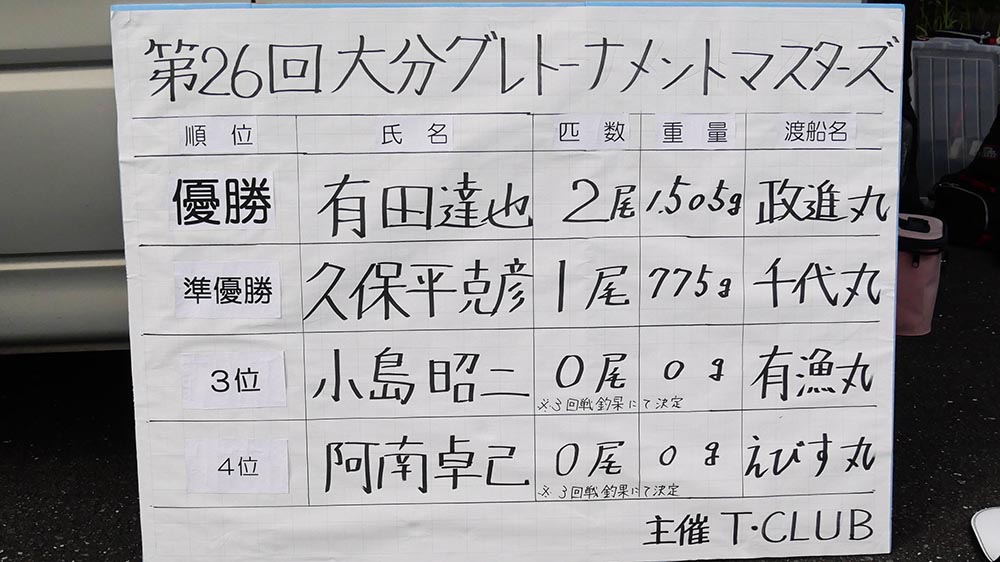 第26回大分グレトーナメントマスターズ
順位 氏名 匹数 重量 渡船名
優勝 有田達也 2尾 1.505g 政進丸
準優勝 久保平克彦 1尾 775g 千代丸
3位 小島昭二 0尾 0g 有漁丸
※3回戦釣果にて決定
4位 阿南卓己 0尾 0g えびす丸
※3回戦釣果にて決定
主催 T・CLUB